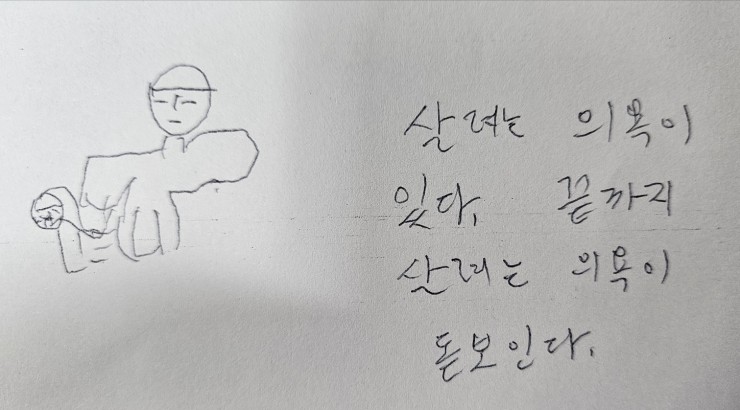 살려는 의욕이
있다. 끝까지
살려는 의욕이
돋보인다.